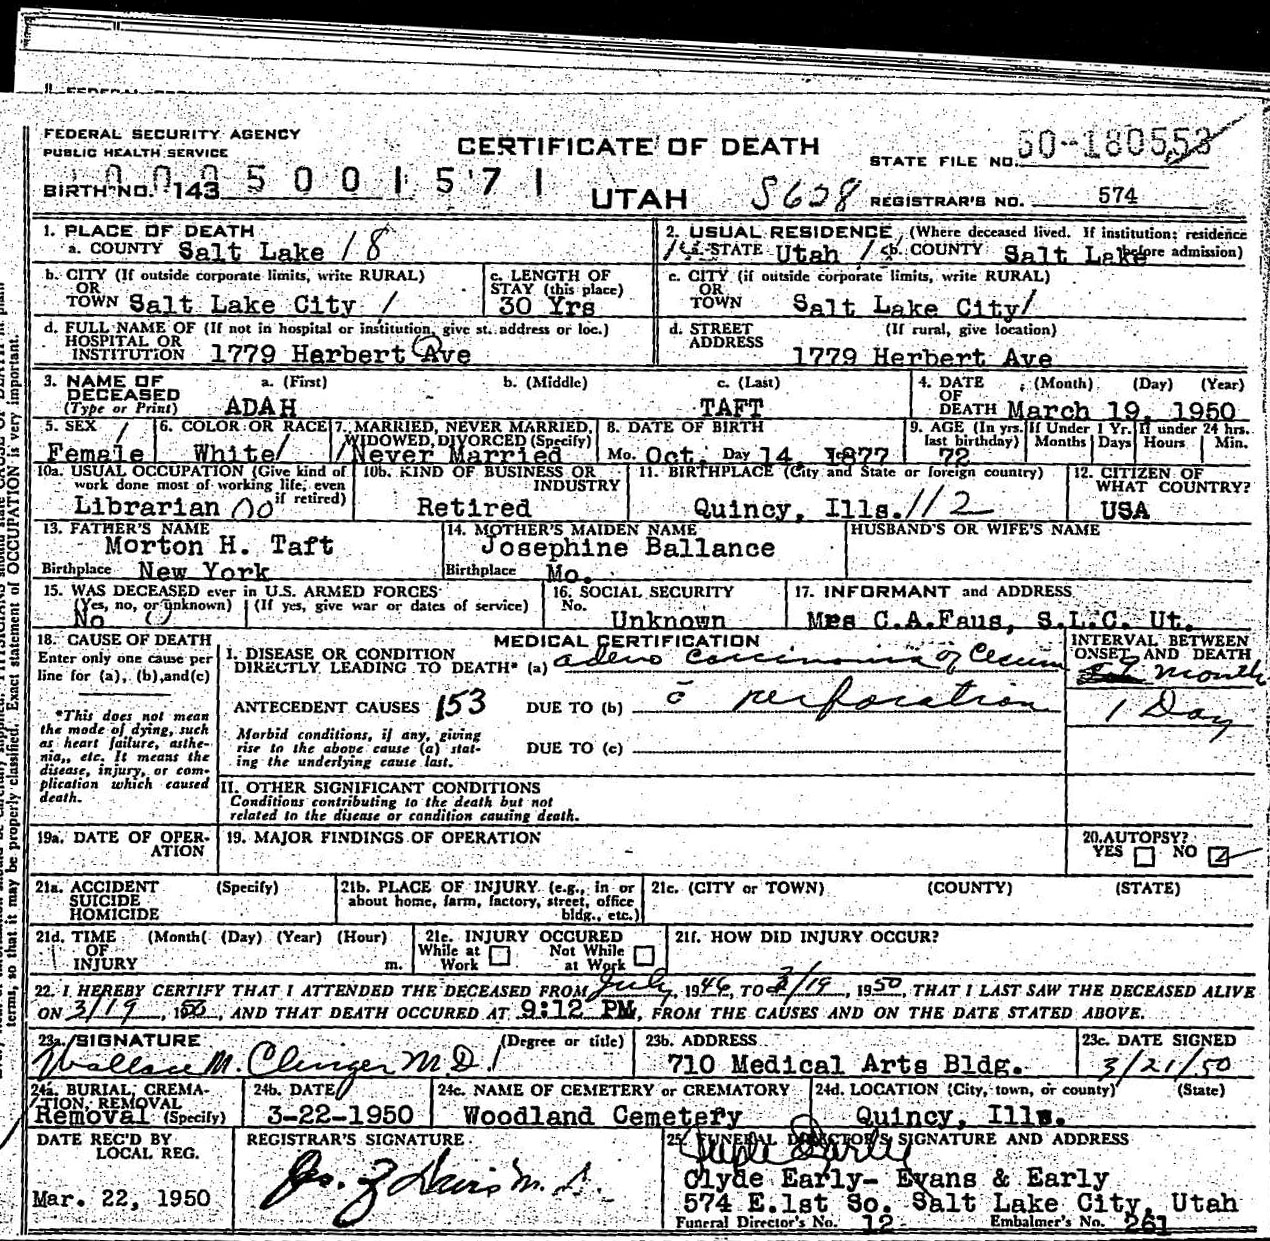 FEDERAL SECURITY AGENCY
PUBLIC HEALTH SERVICE
CERTIFICATE OF DEATH
STATE FILE NO. 50-180553
BIRTH NO. 143
5001571
UTAH
S628
REGISTRAR'S NO. 574
1. PLACE OF DEATH
a. COUNTY Salt Lake 18
2. USUAL RESIDENCE (Where deceased lived. If institution: residence before admission)
STATE Utah b. COUNTY Salt Lake
b. CITY (If outside corporate limits, write RURAL)
OR
TOWN Salt Lake City /
c. LENGTH OF
STAY (this place)
30 Yrs
c. CITY (if outside corporate limits, write RURAL)
OR
TOWN Salt Lake City/
d. FULL NAME OF (If not in hospital or institution, give st. address or loc.)
HOSPITAL OR
INSTITUTION 1779 Herbert Ave
d. STREET (If rural, give location)
ADDRESS
1779 Herbert Ave
3. NAME OF DECEASED
(Type or Print)
a. (First) b. (Middle) c. (Last)
ADAH TAFT
4. DATE OF DEATH (Month) (Day) (Year)
March 19, 1950
5. SEX /
Female
6. COLOR OR RACE
White/
7. MARRIED, NEVER MARRIED,
WIDOWED, DIVORCED (Specify)
/Never Married
8. DATE OF BIRTH
Mo. Oct. Day 14, 1877
9. AGE (In yrs. last birthday)
72
If Under 1 Yr.
Months Days
If under 24 hrs.
Hours Min.
10a. USUAL OCCUPATION (Give kind of
work done most of working life, even
if retired)
Librarian 00
10b. KIND OF BUSINESS OR
INDUSTRY
Retired
11. BIRTHPLACE (City and State or foreign country)
Quincy, Ills. 112
12. CITIZEN OF
WHAT COUNTRY?
USA
13. FATHER'S NAME
Morton H. Taft
Birthplace New York
14. MOTHER'S MAIDEN NAME
Josephine Ballance
Birthplace Mo.
HUSBAND'S OR WIFE'S NAME
15. WAS DECEASED ever in U.S. ARMED FORCES
(Yes, no, or unknown) (If yes, give war or dates of service)
No 0
16. SOCIAL SECURITY
No.
Unknown
17. INFORMANT and ADDRESS
Mrs C.A.Faus, S.L.C. Ut.
18. CAUSE OF DEATH
Enter only one cause per
line for (a), (b), and (c)
*This does not mean
the mode of dying, such
as heart failure, asthe-
nia,, etc. It means the
disease, injury, or com-
plication which caused
death.
MEDICAL CERTIFICATION
I. DISEASE OR CONDITION
DIRECTLY LEADING TO DEATH* (a) adeno carcinoma of Cecum
ANTECEDENT CAUSES 153 DUE TO (b) c̄ perforation
Morbid conditions, if any, giving
rise to the above cause (a) stat-
ing the underlying cause last.
DUE TO (c)
INTERVAL BETWEEN
ONSET AND DEATH
9 month
1 Day
II. OTHER SIGNIFICANT CONDITIONS
Conditions contributing to the death but not
related to the disease or condition causing death.
19a. DATE OF OPER-
ATION
19. MAJOR FINDINGS OF OPERATION
20. AUTOPSY?
YES NO
21a. ACCIDENT (Specify)
SUICIDE
HOMICIDE
21b. PLACE OF INJURY (e.g., in or
about home, farm, factory, street, office
bldg., etc.)
21c. (CITY or TOWN) (COUNTY) (STATE)
21d. TIME (Month( (Day) (Year) (Hour)
OF
INJURY m.
21e. INJURY OCCURED
While at Work Not While at Work
21f. HOW DID INJURY OCCUR?
22. I HEREBY CERTIFY THAT I ATTENDED THE DECEASED FROM July, 1946, TO 3/19, 1950, THAT I LAST SAW THE DECEASED ALIVE
ON 3/19, 1950, AND THAT DEATH OCCURED AT 9:12 PM, FROM THE CAUSES AND ON THE DATE STATED ABOVE.
23a. SIGNATURE (Degree or title)
Wallace M. Clinger M.D.
23b. ADDRESS
710 Medical Arts Bldg.
23c. DATE SIGNED
3/21/50
24a. BURIAL, CREMA-
TION, REMOVAL
Removal (Specify)
24b. DATE
3-22-1950
24c. NAME OF CEMETERY or CREMATORY
Woodland Cemetery
24d. LOCATION (City, town, or county) (State)
Quincy, Ills.
DATE REC'D BY
LOCAL REG.
Mar. 22, 1950
REGISTRAR'S SIGNATURE
25. FUNERAL DIRECTOR'S SIGNATURE AND ADDRESS
Clyde Early- Evans & Early
574 E.1st So. Salt Lake City, Utah
Funeral Director's No. 12 Embalmer's No. 261
terms, so that it may be properly classified. Exact statement of OCCUPATION is very important.